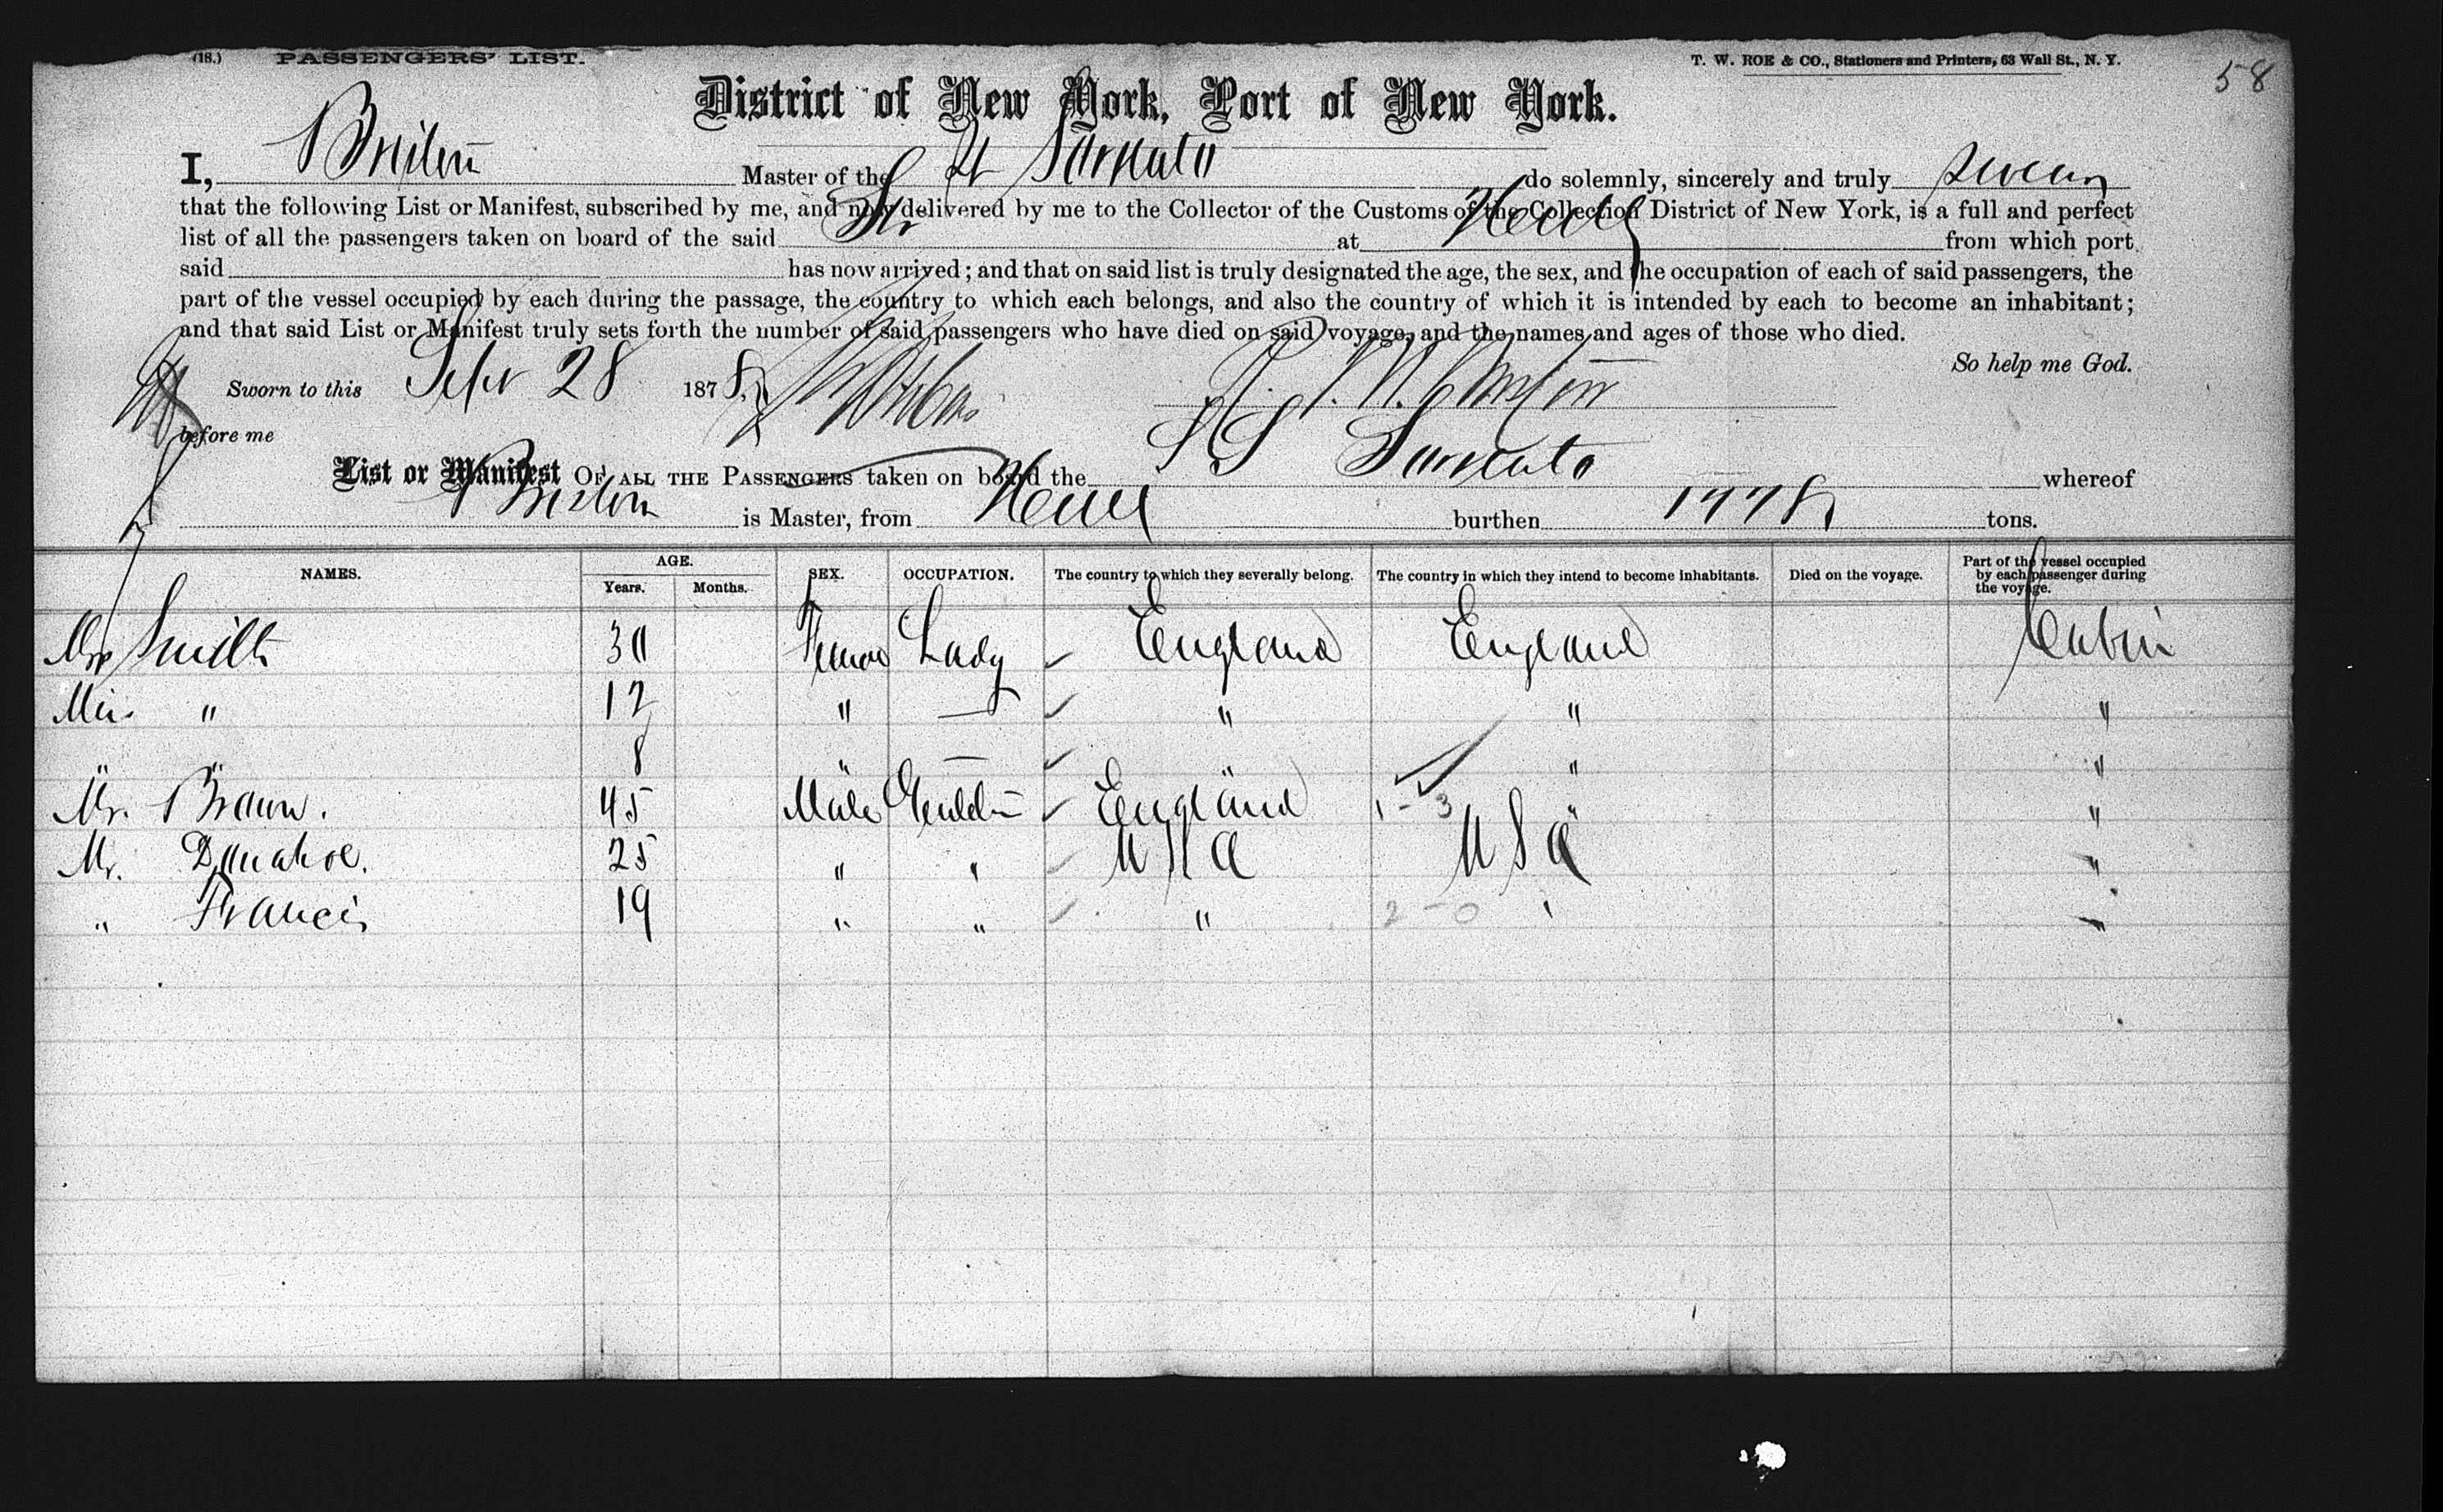 (18.) PASSENGERS' LIST.
T. W. ROE & CO., Stationers and Printers, 63 Wall St., N. Y.
58
District of New York, Port of New York.
I, Master of the do solemnly, sincerely and truly swear
that the following List or Manifest, subscribed by me, and now delivered by me to the Collector of the Customs of the Collection District of New York, is a full and perfect
list of all the passengers taken on board of the said Str at from which port
said has now arrived; and that on said list is truly designated the age, the sex, and the occupation of each of said passengers, the
part of the vessel occupied by each during the passage, the country to which each belongs, and also the country of which it is intended by each to become an inhabitant;
and that said List or Manifest truly sets forth the number of said passengers who have died on said voyage, and the names and ages of those who died.
So help me God.
Sworn to this Sepr 28 1878,
before me
List or Manifest OF ALL THE PASSENGERS taken on board the S.S. whereof
is Master, from burthen tons.
NAMES. AGE. Years. Months. SEX. OCCUPATION. The country to which they severally belong. The country in which they intend to become inhabitants. Died on the voyage. Part of the vessel occupied by each passenger during the voyage.
Mrs Smith 30 Lady England England Cabin
Miss " 12 " — " " "
" " 8 " — " "
Mr. Brown. 45 Male England 1-3 " "
Mr. Donahoe. 25 " " U S A U S A "
" Francis 19 " " " 2-0 "